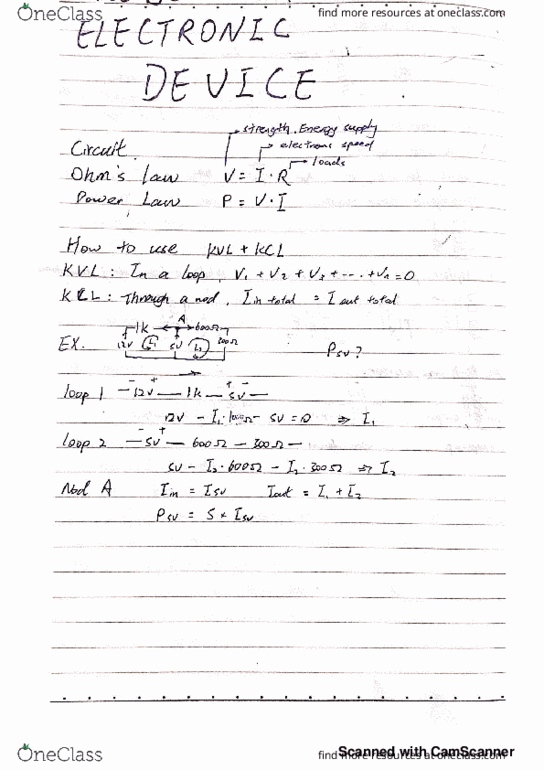 OneClass find more resources at oneclass.com
ELECTRONIC
DEVICE
strength, Energy supply
Circuit. electrons speed
loads
Ohm's law V = I · R
Power Law P = V · I
How to use KVL + KCL
KVL : In a loop, V1 + V2 + V3 + ... + Vn = 0
KCL : Through a nod, I in total = I out total
A
1k 600Ω
EX. 12V I1 5V I2 300Ω P5V ?
loop 1 - 12V + 1k + 5V -
12V - I1 · 1000Ω - 5V = 0 ⇒ I1
loop 2 - 5V + 600Ω - 300Ω -
5V - I2 · 600Ω - I2 · 300Ω ⇒ I2
Nod A Iin = I5V Iout = I1 + I2
P5V = 5 × I5V
OneClass find more resources at oneclass.com
Scanned with CamScanner